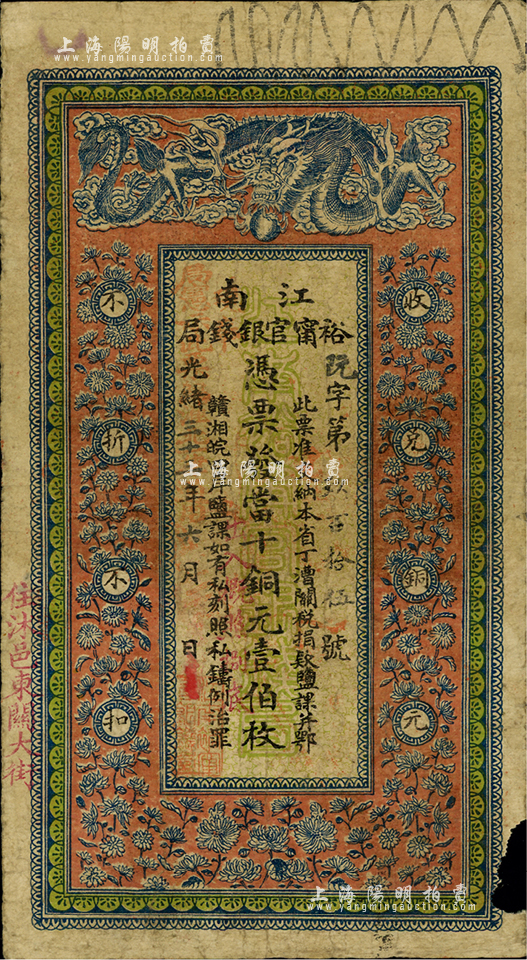 上海陽明拍賣
www.yangmingauction.com
江南
裕甯官銀錢局
阮字第 百拾伍號
此票准 納本省丁漕關稅捐款鹽課并鄂
憑票 當十銅元壹佰枚
贛湘皖 岸鹽課如有私刻照私鑄例治罪
光緒三十 年六月 日
收兌銅元
不折不扣
住沭邑東關大街
上海陽明拍賣
www.yangmingauction.com
上海陽明拍賣
www.yangmingauction.com